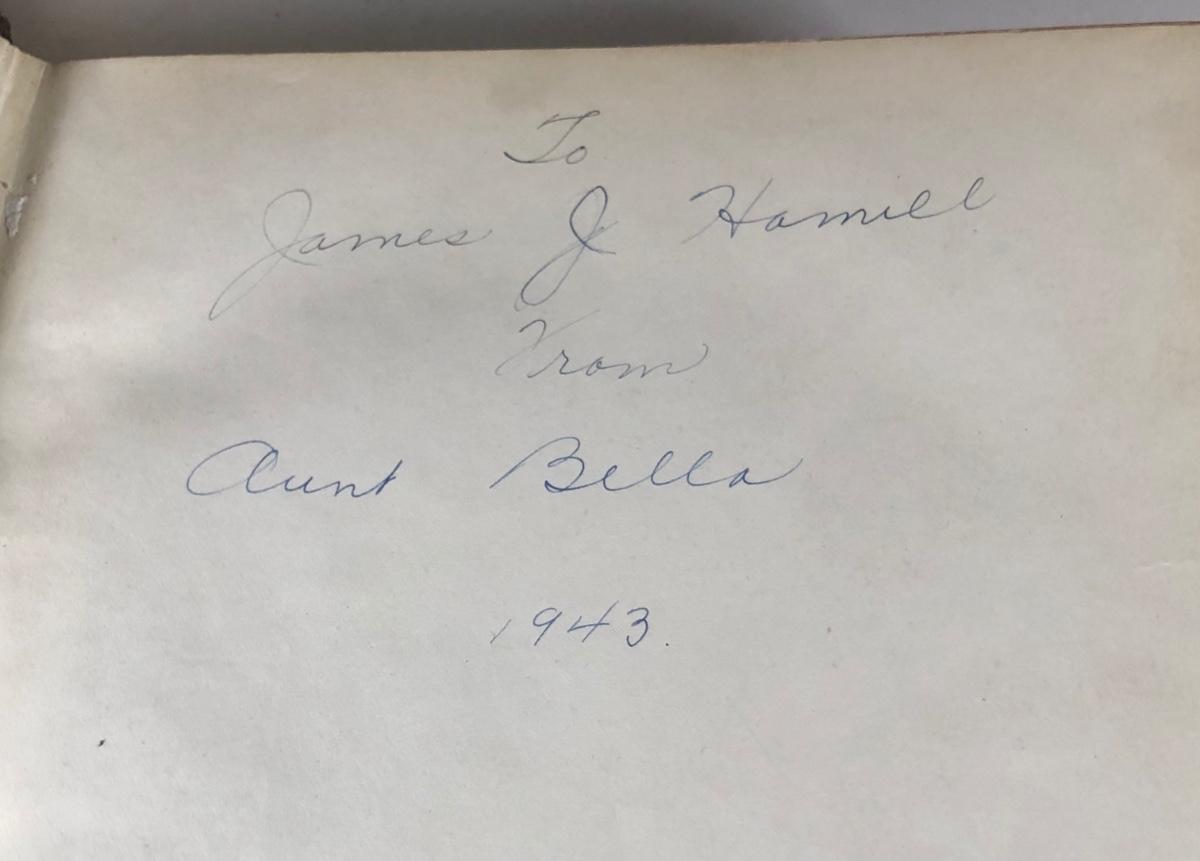 To
James J Hamill
From
Aunt Bella
1943.